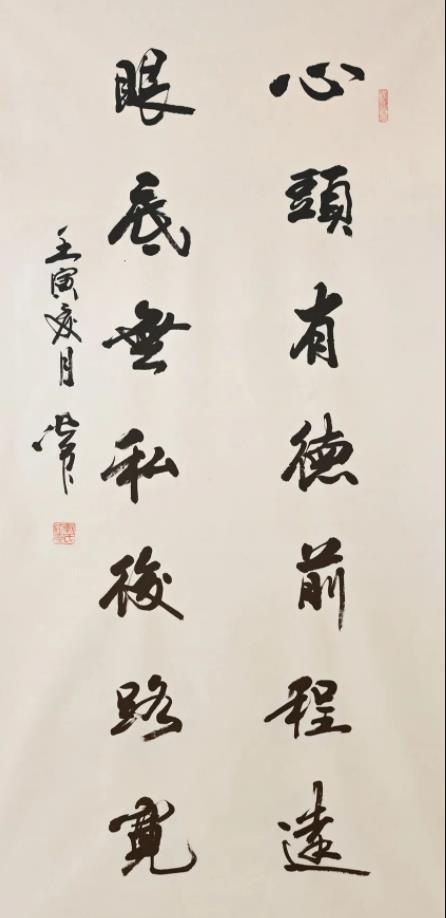 心頭有德前程遠
眼底無私後路寬
壬寅夏月